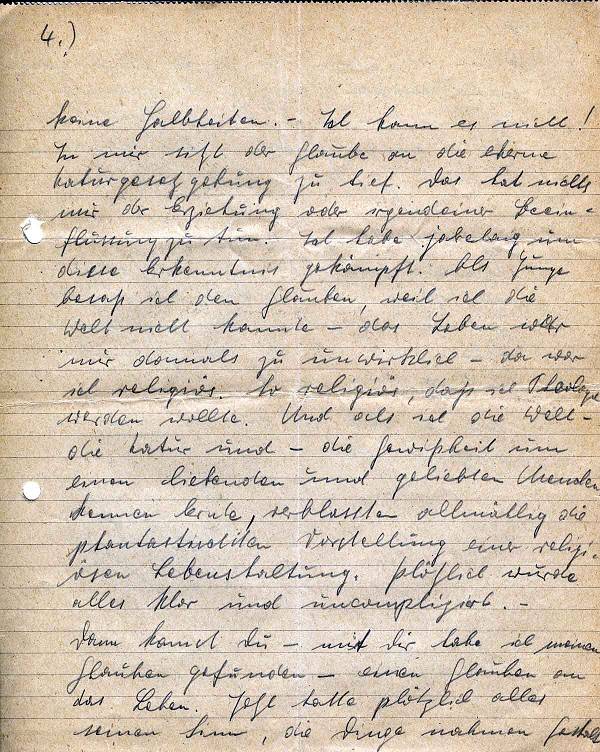 4.)
keine Halbheiten. – Ich kann es nicht!
In mir sitzt der Glaube an die eherne
Naturgesetzgebung zu tief. Das hat nichts
mir der Erziehung oder irgendeiner Beein-
flussung zu tun. Ich habe jahrelang um
diese Erkenntnis gekämpft. Als Junge
besaß ich den Glauben, weil ich die
Welt nicht kannte – das Leben war
mir damals zu unwirklich – da war
ich religiös. So religiös, daß ich Theologe
werden wollte. Und als ich die Welt –
die Natur und – die Gewißheit um
einen liebenden und geliebten Menschen
kennen lernte, verblassten allmählig die
phantastischen Vorstellung einer religi-
ösen Lebenshaltung. Plötzlich wurde
alles klar und unkompliziert. –
Dann kamst Du – mit Dir habe ich meinen
Glauben gefunden – einen Glauben an
das Leben. Jetzt hatte plötzlich alles
seinen Sinn, die Dinge nahmen Gestalt